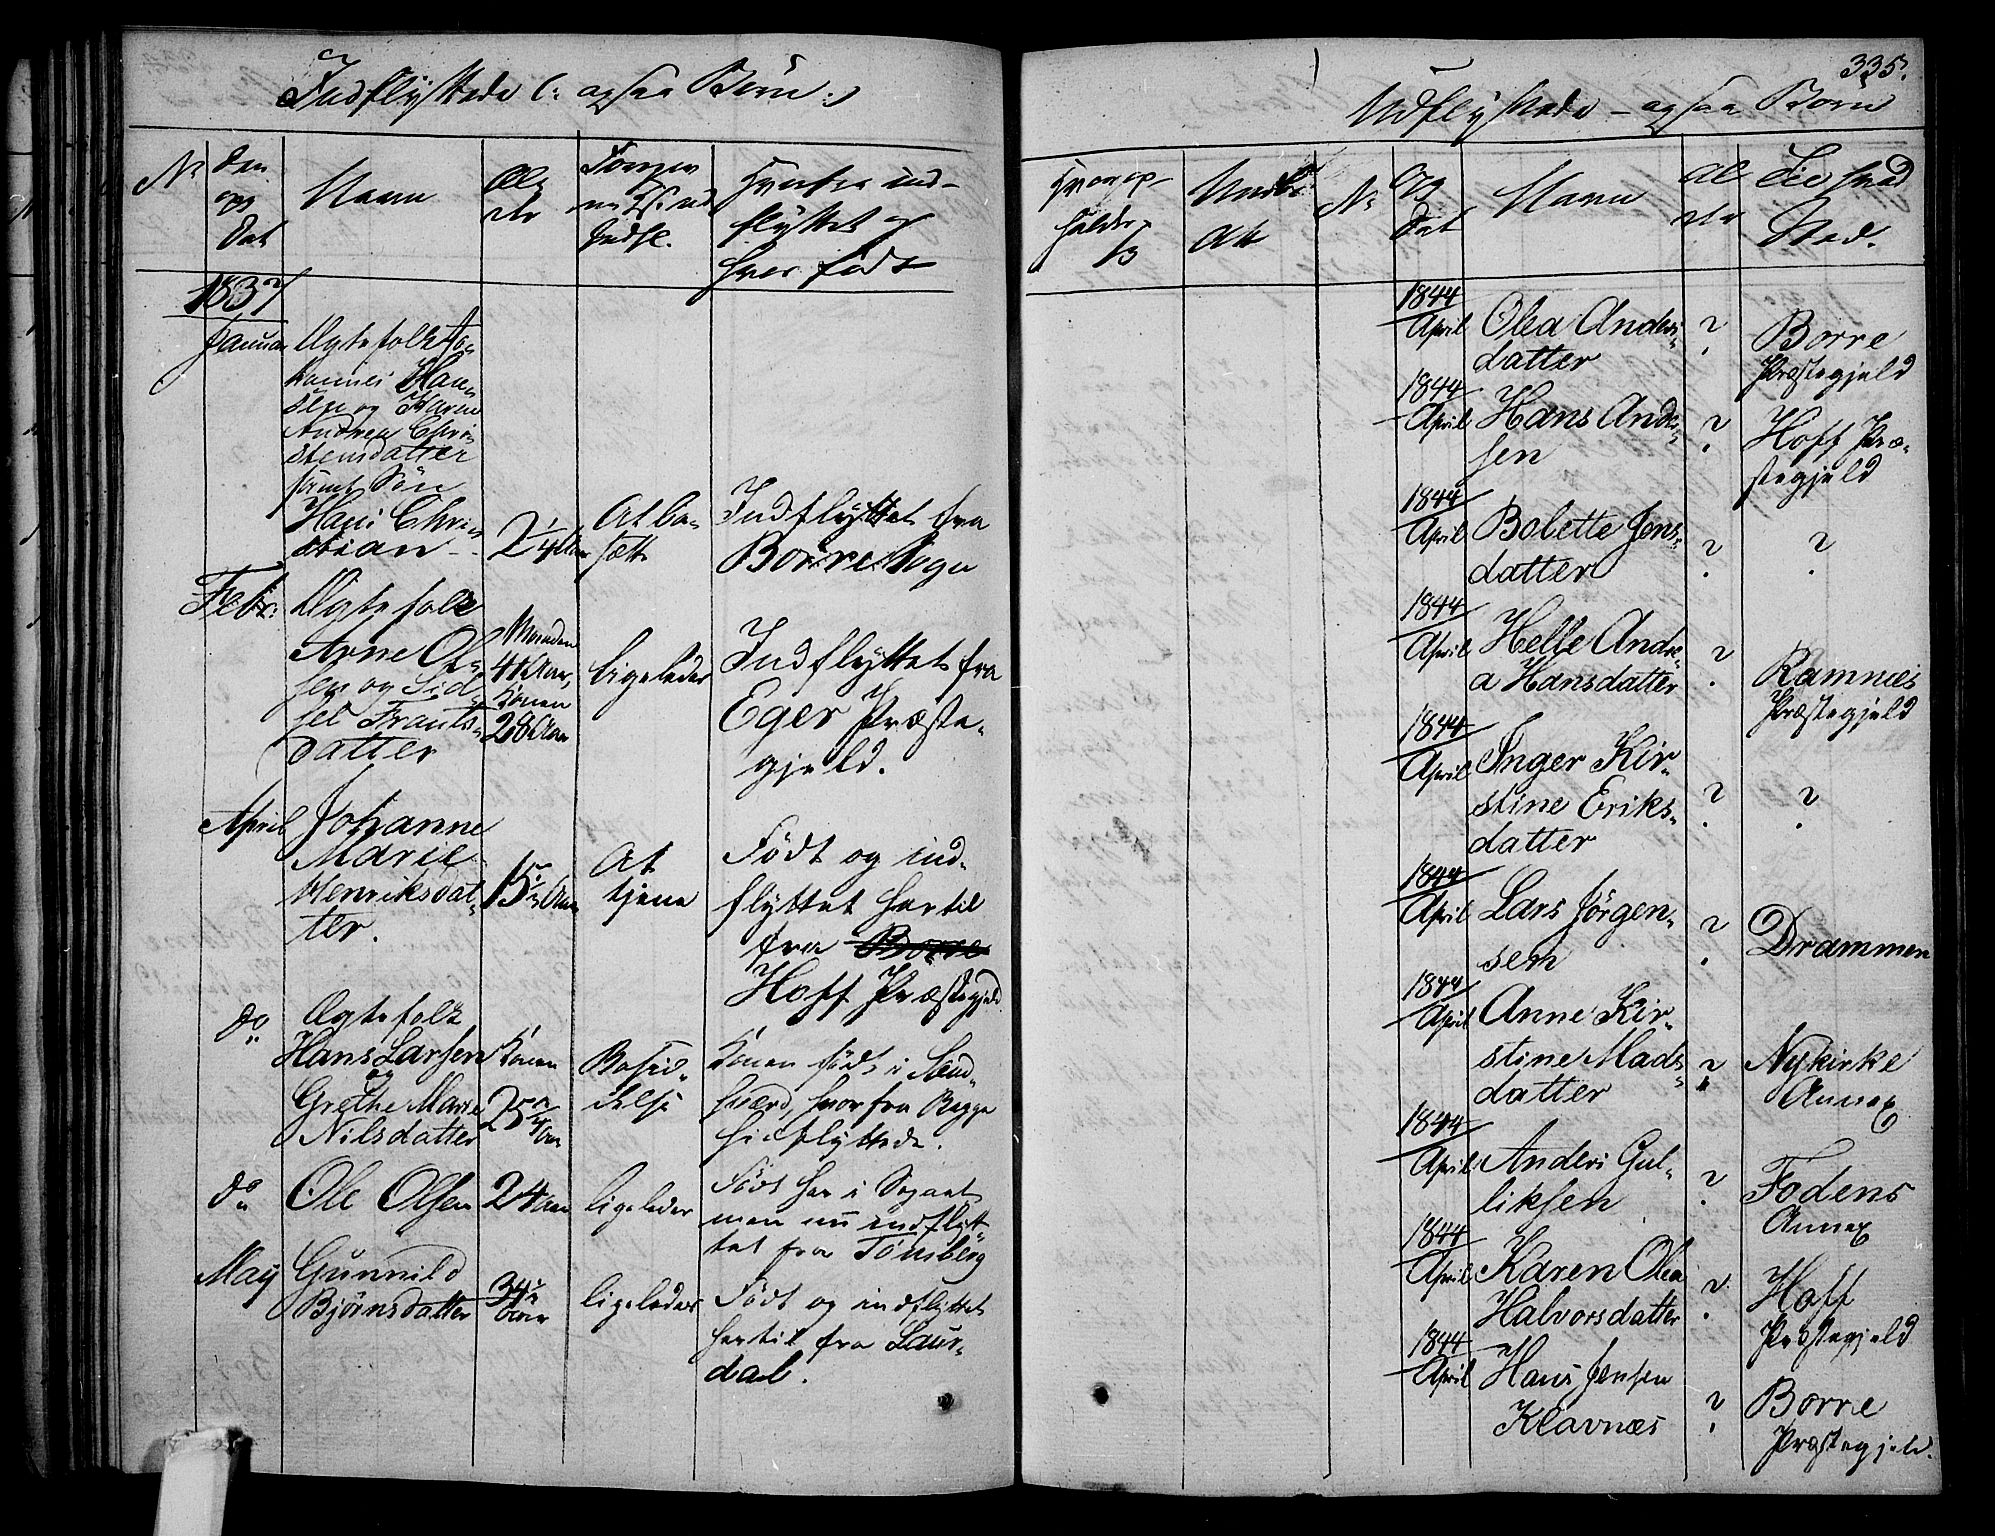 Indflyttede (: ogsaa Børn :)
No
Den
og
Dat
Navn
Al-
der
Hvorfra ind-
flyttet og
hvor født
1837
Januar
Ægtefolk Jo-
hannes Han-
sen og Karen
Andrea Chri-
stensdatter
samt Søn
Hans Chri-
stian
2 1/4 Aar
At bo-
sætte
Indflyttet fra
Borre Sogn
Febr:
Ægtefolk
Arne Ol-
sen og Sid-
sel Frants-
datter
Manden
41 Aar,
Konen
28 Aar
ligeledes
Indflyttet fra
Eger Præste-
gjeld.
April
Johanne
Marie
Henriksdat-
ter.
15 1/2 Aar
At
tjene
Født og ind-
flyttet hertil
fra Borre
Hoff Præstegjeld
do
Ægtefolk
Hans Larsen
og
Grethe Marie
Nilsdatter
Konen
25 3/4 Aar
Konen født i Sand-
sværd, hvorfra Begge
hidflyttede.
do
Ole Olsen
24 Aar
ligeledes
Født her i Sognet
men nu indflyt-
tet fra Tønsberg
May
Gunnild
Bjørnsdatter
34 1/2
Aar
ligeledes
Født og indflyttet
hertil fra Laur-
dal.
335.
Udflyttede - ogsaa Børn
No
og
Dat
Navn
Al-
der
Til hvad
Sted.
1844
April
Olea Anders-
datter
?
Borre
Præstegjeld
1844
April
Hans Ander-
sen
?
Hoff Præ-
stegjeld
1844
April
Bolette Jens-
datter
?
?
1844
April
Helle Andre-
a Hansdatter
?
Ramnes
Præstegjeld
1844
April
Inger Kir-
stine Eriks-
datter
?
?
1844
April
Lars Jørgen-
sen
?
Drammen
1844
April
Anne Kir-
stine Mads-
datter
?
Nykirke
Annex
1844
April
Anders Gul-
liksen
?
Fodens
Annex
1844
April
Karen Olea
Halvorsdatter
?
Hoff
Præstegjeld
1844
April
Hans Jensen
Klavnæs
?
Borre
Præstegjeld.